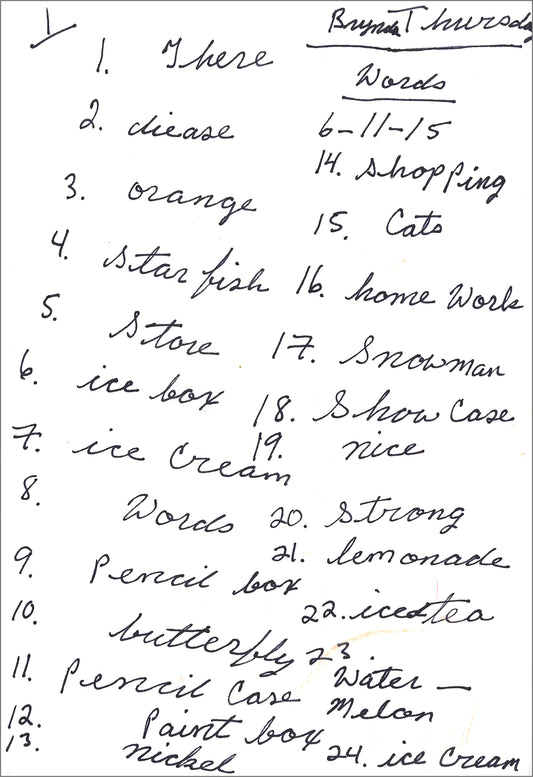 1
Brynda Thursday
Words
6-11-15
1. There
2. diease
3. orange
4. Star fish
5. Store
6. ice box
7. ice Cream
8. Words
9. Pencil box
10. butterfly
11. Pencil Case
12. Paint box
13. nickel
14. Shopping
15. Cats
16. home Work
17. Snowman
18. Show Case
19. nice
20. Strong
21. lemonade
22. iced tea
23. Water –
Melon
24. ice Cream